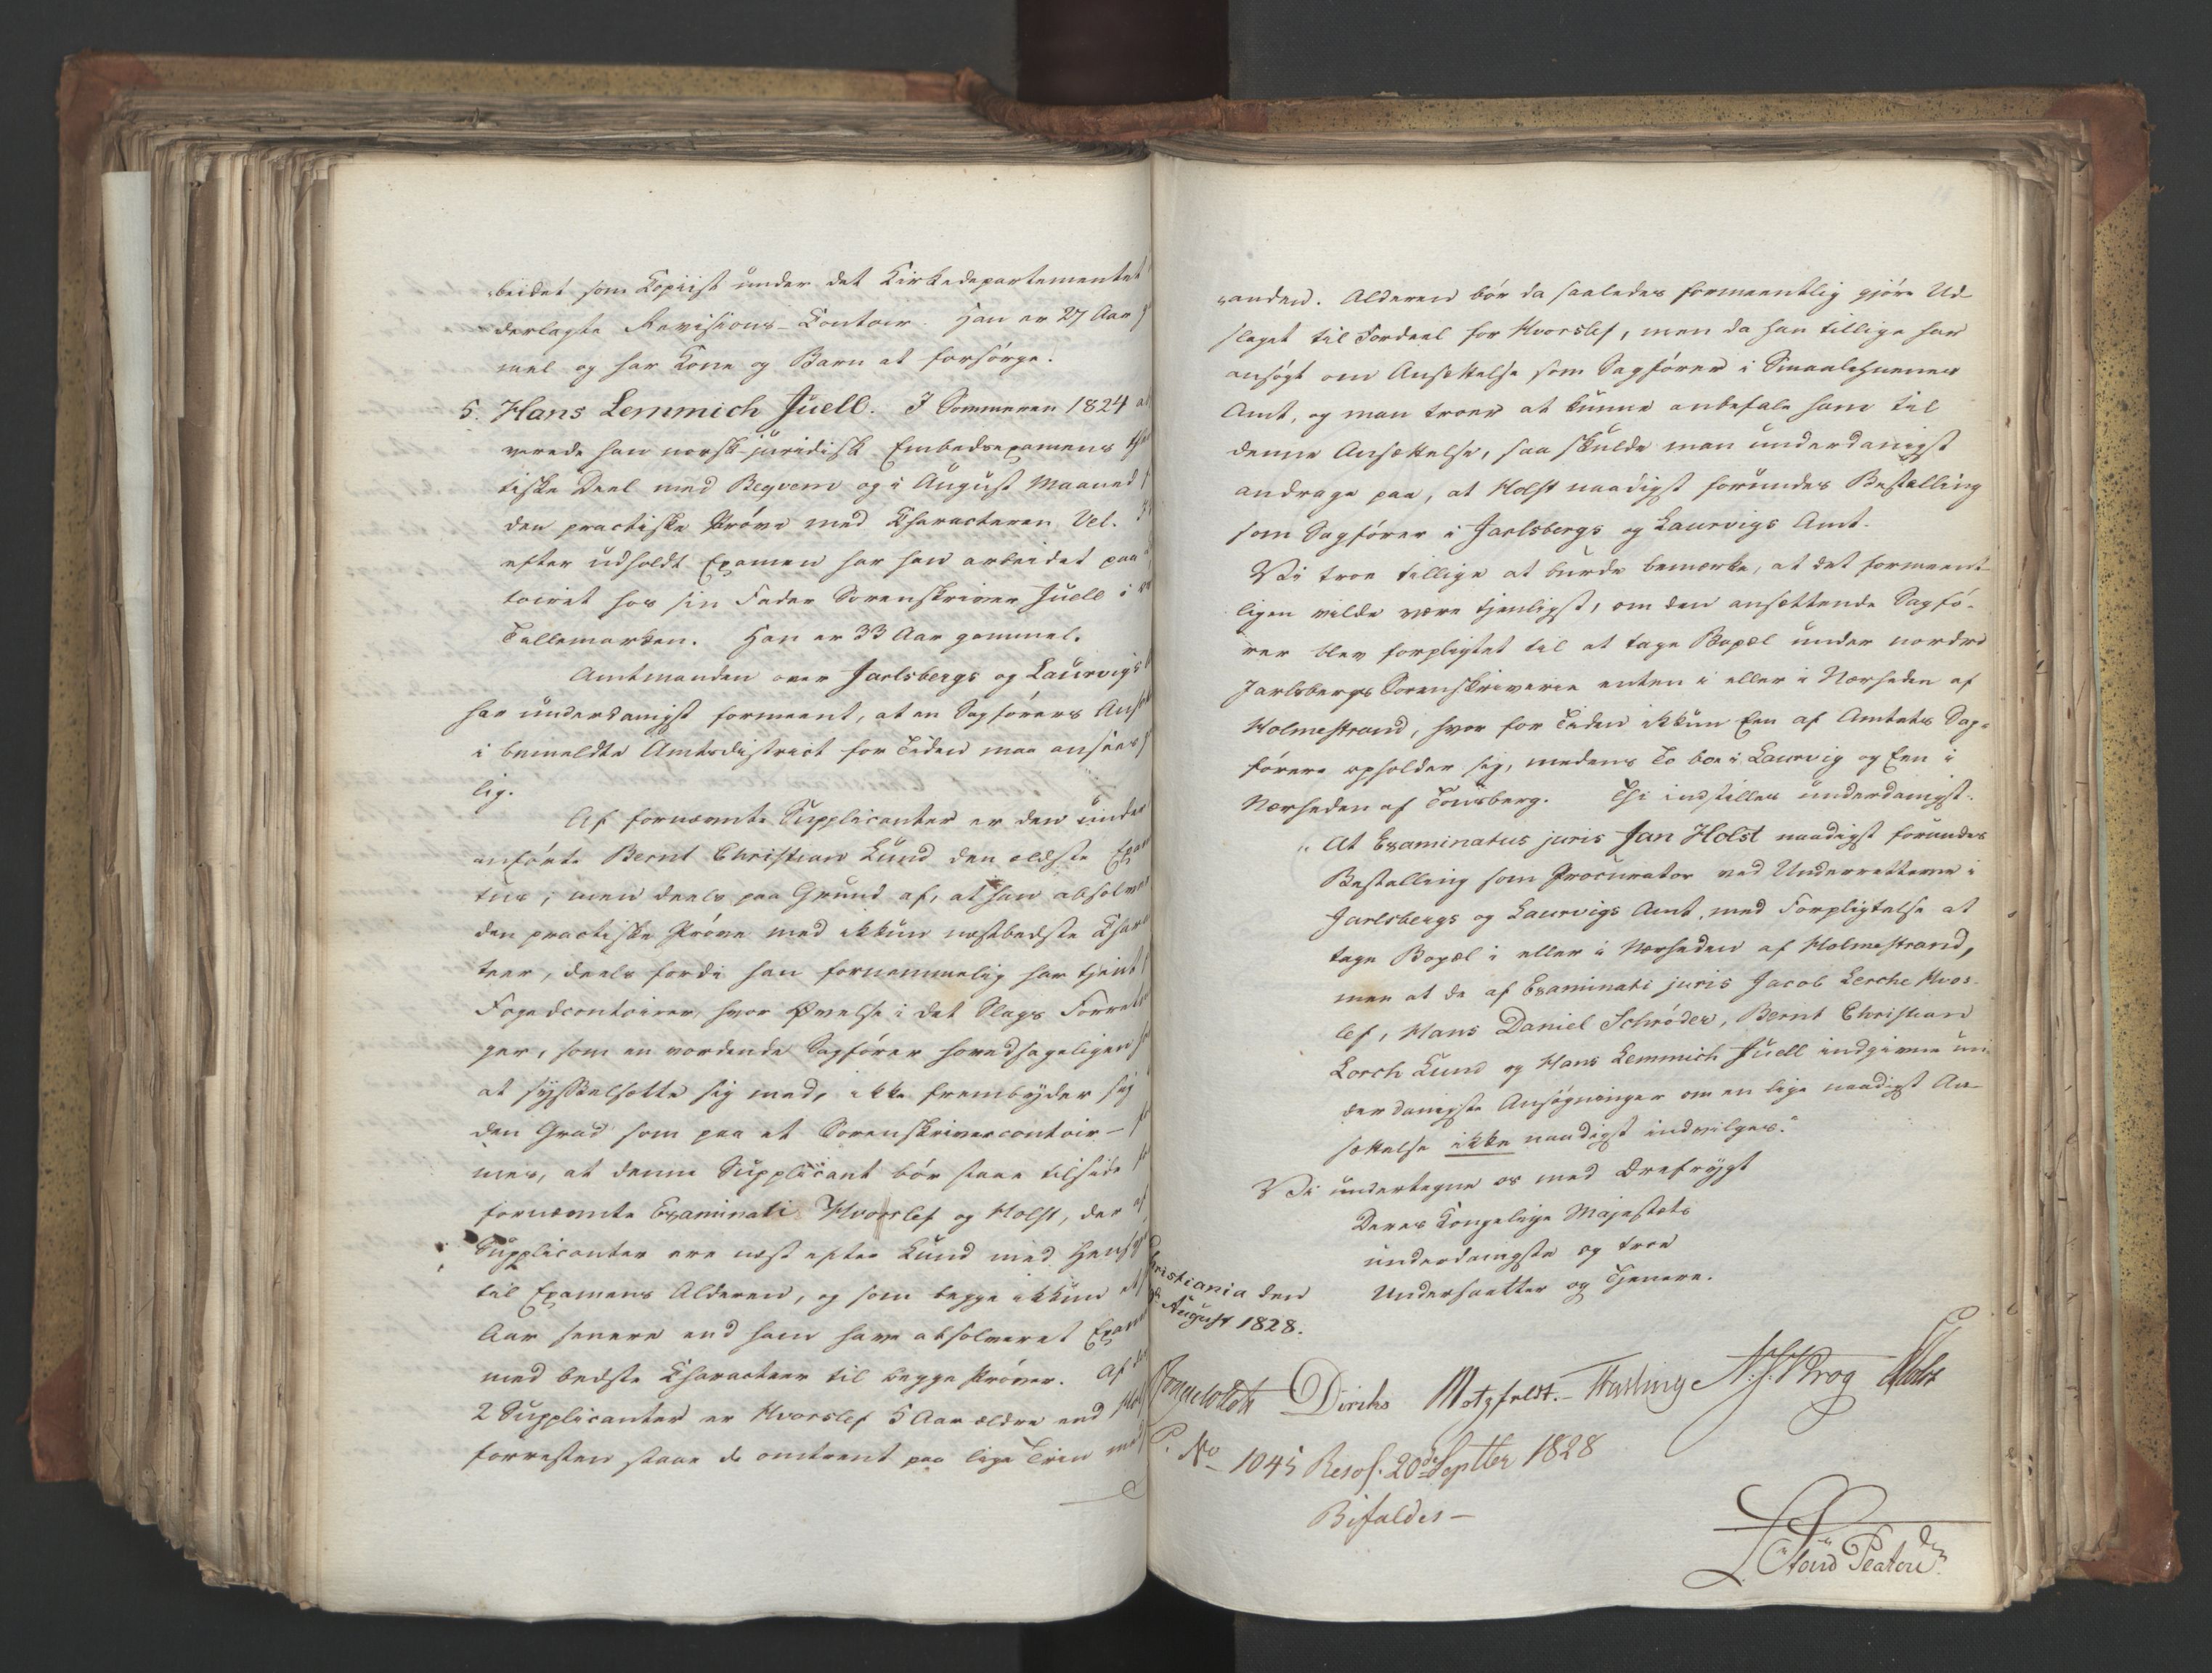 beidet som Kopiist under det Kirkedepartementet
derlagte Revisions-Contoir. Han er 27 Aar
mel og har Kone og Barn at forsörge.
5. Hans Lemmich Juell. I Sommeren 1824
verede han norsk-juridisk Embedsexamens
tiske Deel med Beqvem og i August Maaned
den practiske Pröve med Characteren Vel.
efter udholdt Examen har han arbeidet paa
toiret hos sin Fader Sorenskriver Juell i
Tellemarken. Han er 33 Aar gammel.
Amtmanden over Jarlsbergs og Laurvigs
har underdanigst formeent, at en Sagförers
i bemeldte Amtsdistrict for Tiden maa ansees
lig.
Af fornævnte Supplicanter er den under
anförte Bernt Christian Lund den ældste
tus; men deels paa Grund af, at han
den practiske Pröve med ikkun næstbedste
teer, deels fordi han fornemmelig har tjent
Fogedcontoirer, hvor Øvelse i det Slags
ger, som en vordende Sagförer hovedsageligen
at sysselsætte sig med, ikke frembyder sig
den Grad som paa et Sorenskrivercontoir –
mes, at denne Supplicant bör staae tilside
fornævnte Examinati Hvorslef og Holst, der
Supplicanter ere næst efter Lund med
til Examens Alderen, og som begge ikkun
Aar senere end ham have absolveret
med bedste Characteer til begge Pröver. Af
2 Supplicanter er Hvorslef 5 Aar ældre end
forresten staae de omtrent paa lige Trin
randen. Alderen bör da saaledes formeentlig gjöre Ud-
slaget til Fordeel for Hvorslef, men da han tillige har
ansögt om Ansættelse som Sagförer i Smaalehnenes
Amt, og man troer at kunne anbefale ham til
denne Ansættelse, saa skulde man underdanigst
andrage paa, at Holst naadigst forundes Bestalling
som Sagförer i Jarlsbergs og Laurvigs Amt.
Vi troe tillige at burde bemærke, at det formeent-
ligen vilde være tjenligst, om den ansættende Sagfö-
rer blev forpligtet til at tage Bopæl under nordre
Jarlsbergs Sorenskriverie enten i eller i Nærheden af
Holmestrand, hvor for Tiden ikkun Een af Amtets Sag-
förere opholder sig, medens To boe i Laurvig og Een i
Nærheden af Tönsberg. Thi indstilles underdanigst:
"At Examinatus juris Jan Holst naadigst forundes
Bestalling som Procurator ved Underretterne i
Jarlsbergs og Laurvigs Amt, med Forpligtelse at
tage Bopæl i eller i Nærheden af Holmestrand,
men at de af Examinati juris Jacob Lerche Hvos-
lef, Hans Daniel Schröder, Bernt Christian
Lorch Lund og Hans Lemmich Juell indgivne un-
derdanigste Ansögninger om en lige naadigst An-
sættelse ikke naadigst indvilges."
Vi undertegne os med Ærefrygt
Deres Kongelige Majestæts
underdanigste og troe
Undersaatter og Tjenere.
Christiania den
August 1828.
Diriks Motzfeldt. N. J. Krog Holst
P. No 1045 Resol. 20de Septbr 1828
Bifaldes –